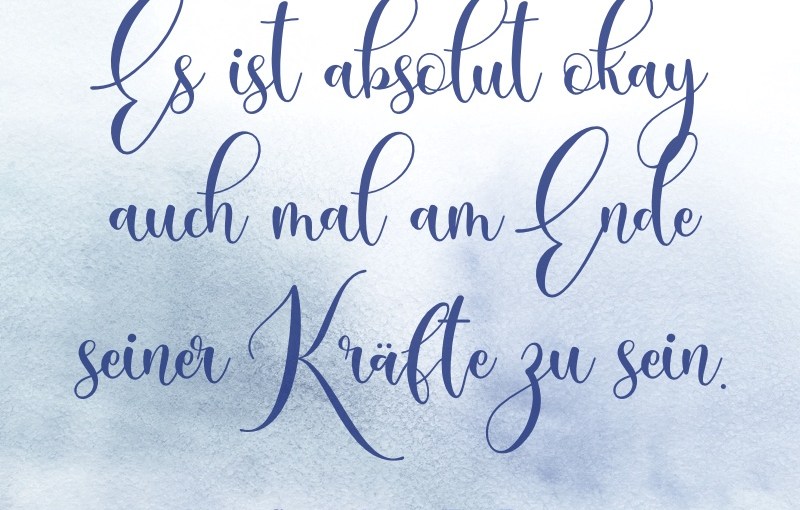 Es ist absolut okay
auch mal am Ende
seiner Kräfte zu sein.